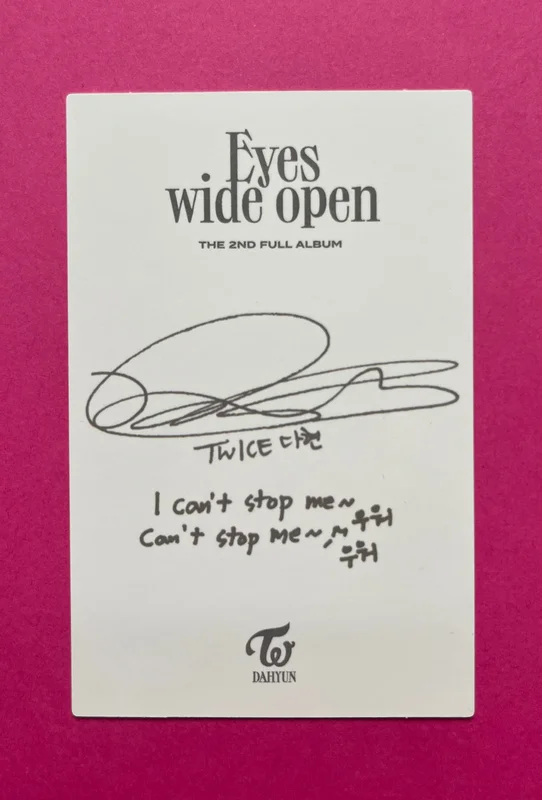 Eyes
wide open
THE 2ND FULL ALBUM
TWICE 다현
I can't stop me~ 우워
Can't stop me~ 우워
TW
DAHYUN